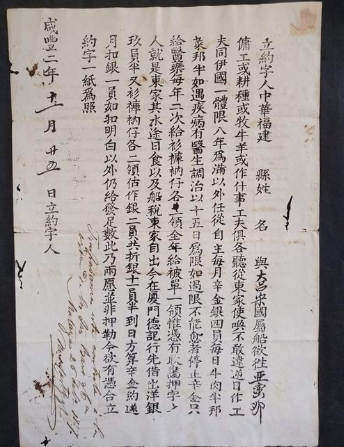 立約字人中華福建 縣姓 名 與大呂宋國属船欲往亞灣那
傭工或耕種或牧牛羊或作什事工夫俱各聽從東家使喚不敢違逆日作工
夫同伊國一體限八年為滿以外任從自主每月辛金銀四員每日牛肉半邦
菜邦半如遇疾病有醫生調治以十五日為限如過限不能愈者停止辛金只
給醫藥每年二次給衫褲衲仔各一領全年給被單一領惟憑有收押字之
人就是東家其水途日食以及船稅東家自出今在廈門德記行先借出洋銀
玖員半又衫褲衲仔各二領估作銀二員共折銀十一員半到日方算辛金約逐
月扣銀一員如扣明白以外仍給發足數此乃兩愿並非抑勒今欲有憑合立
約字一紙為照
咸豐二年十二月廿五日立約字人